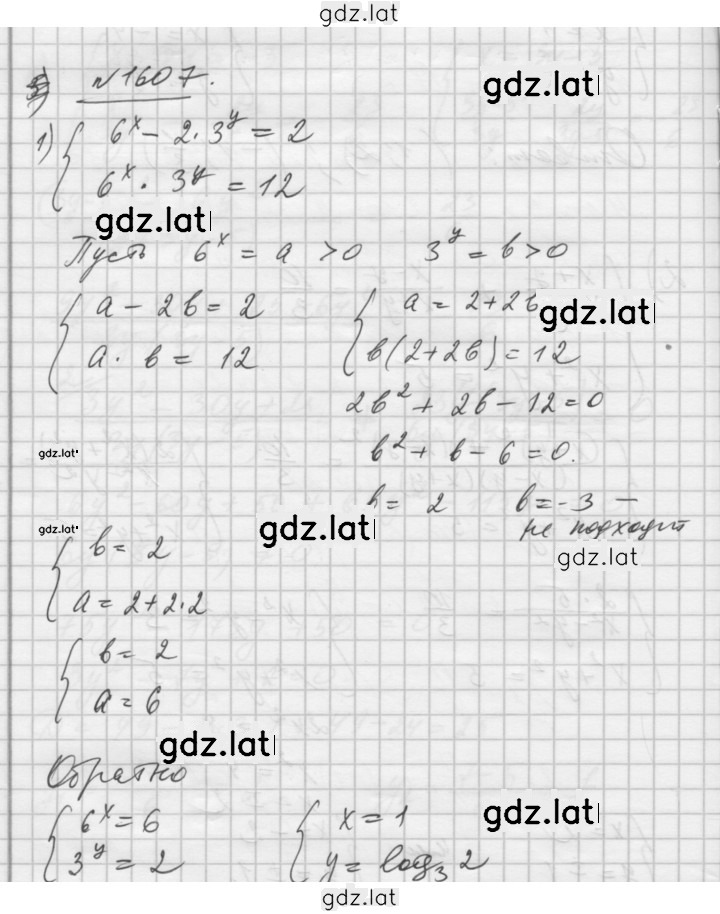 gdz.lat
№1607.
gdz.lat
1) { 6ˣ - 2·3ʸ = 2
6ˣ · 3ʸ = 12
gdz.lat
Пусть 6ˣ = a > 0 3ʸ = b > 0
{ a - 2b = 2 { a = 2 + 2b
gdz.lat
a · b = 12 b(2+2b) = 12
2b² + 2b - 12 = 0
gdz.lat
b² + b - 6 = 0.
b = 2 b = -3 —
не подходит
gdz.lat
gdz.lat
gdz.lat
{ b = 2
a = 2+2·2
{ b = 2
a = 6
gdz.lat
Обратно
{ 6ˣ = 6 { x = 1
gdz.lat
3ʸ = 2 y = log₃ 2
gdz.lat